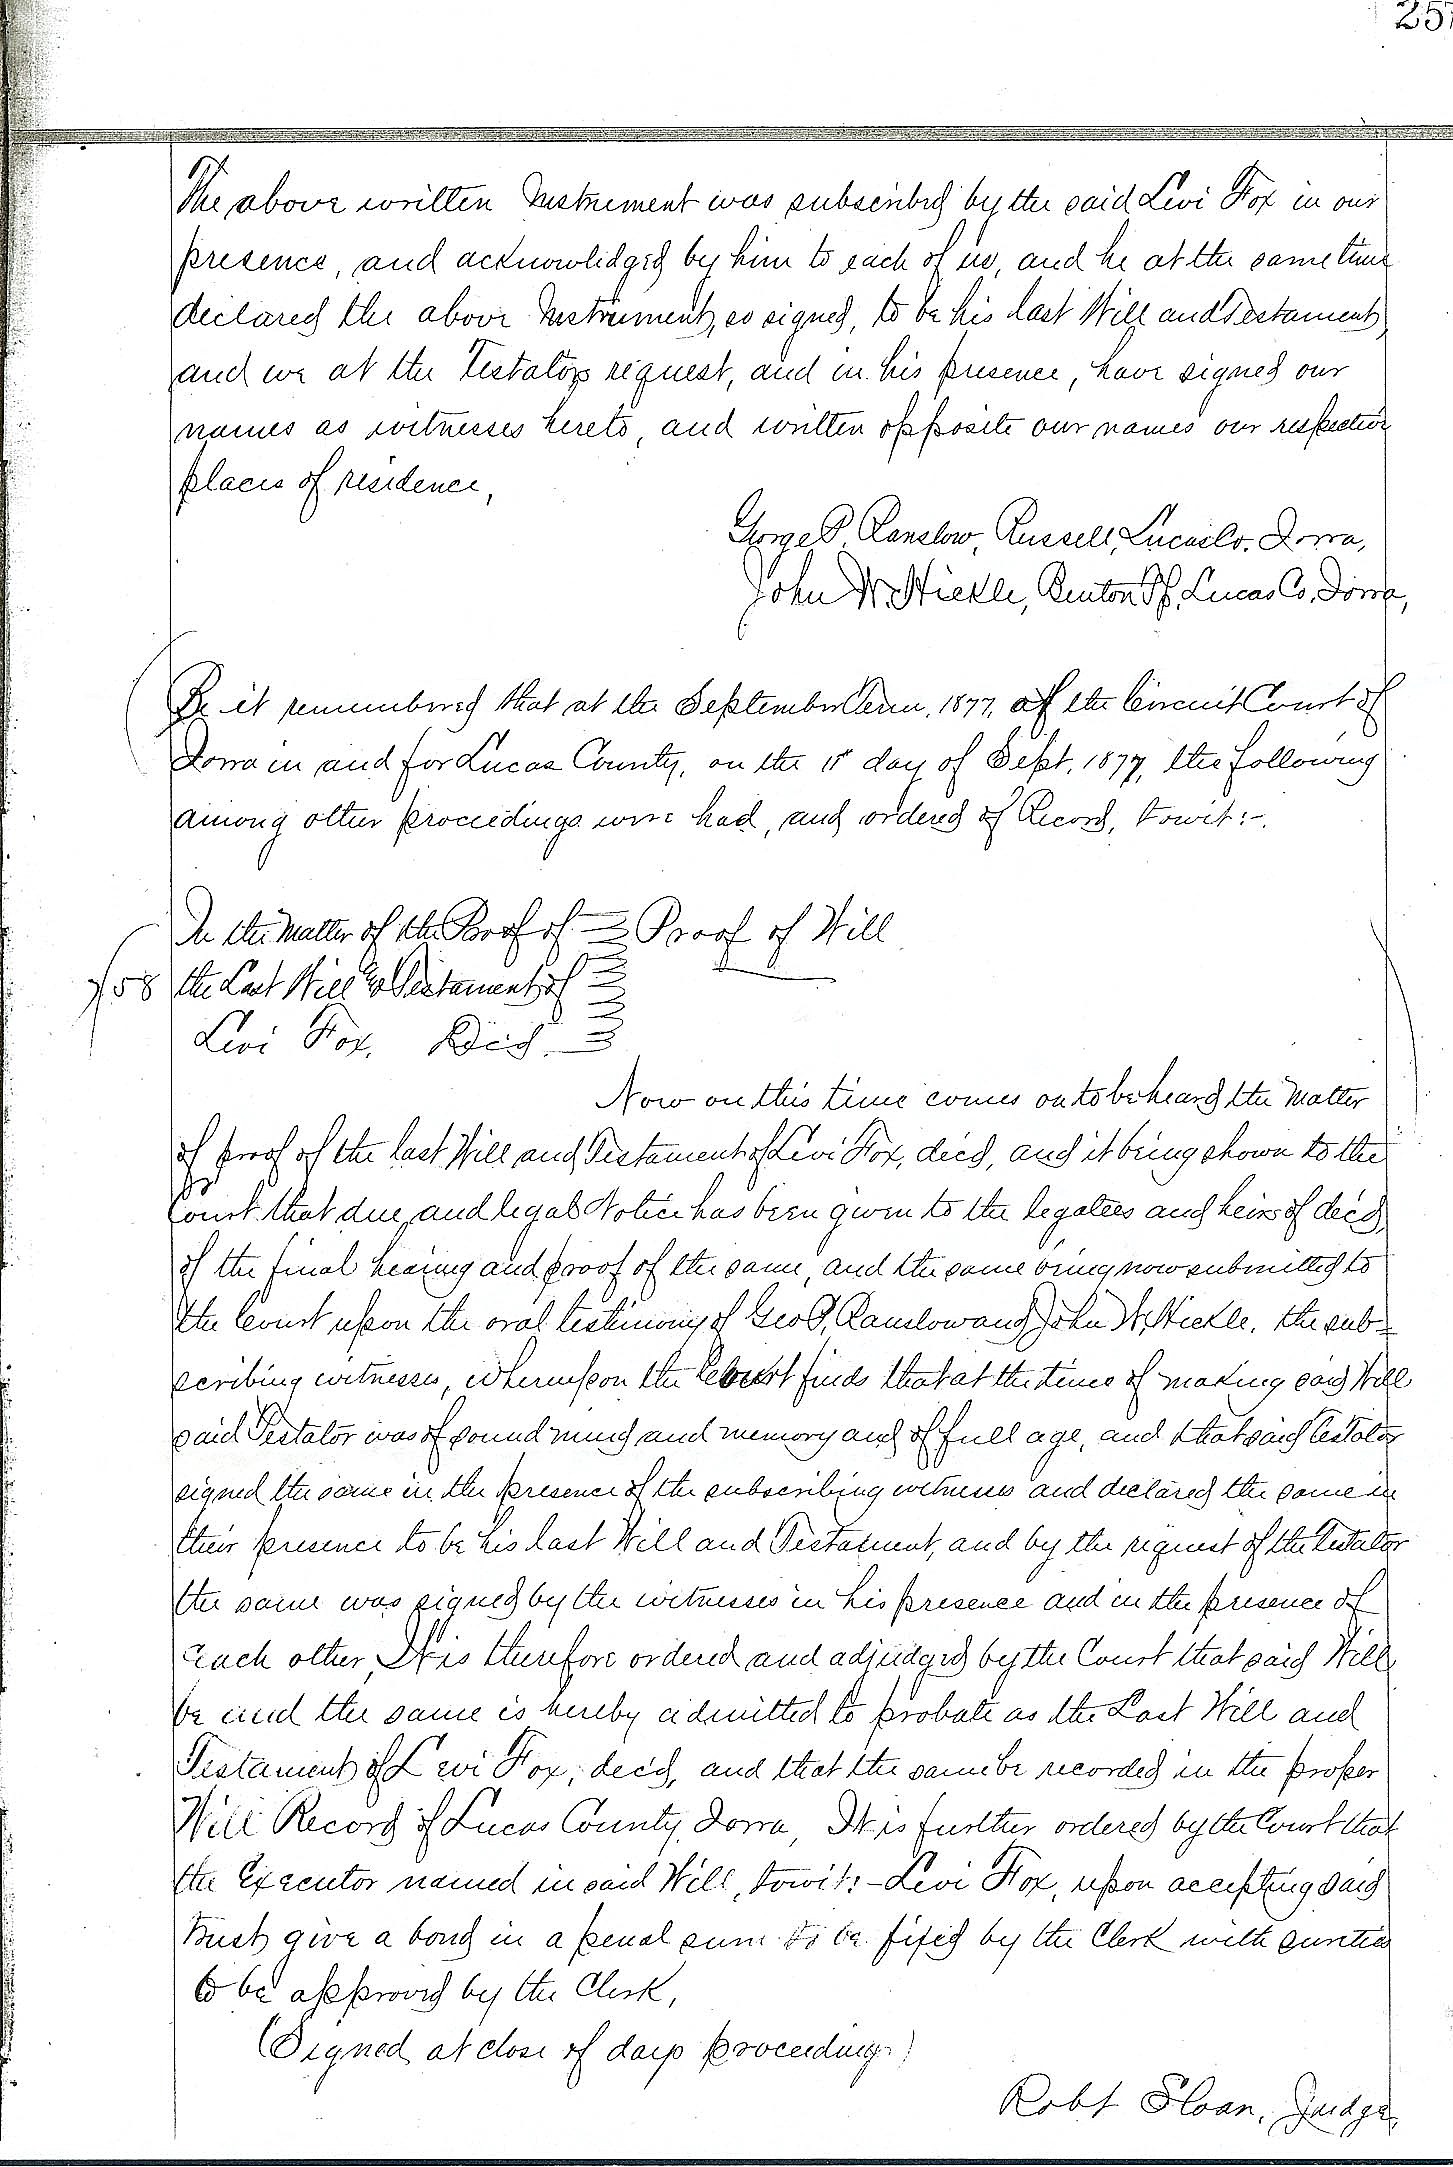 257
The above written Instrument was subscribed by the said Levi Fox in our
presence, and acknowledged by him to each of us, and he at the same time
declared the above Instrument, so signed, to be his last Will and Testament,
and we at the Testators request, and in his presence, have signed our
names as witnesses hereto, and written opposite our names our respective
places of residence,
George P. Ranslow, Russell, Lucas Co. Iowa,
John W. Hickle, Benton Tp, Lucas Co, Iowa,
Be it remembered that at the September Term, 1877, of the Circuit Court of
Iowa in and for Lucas County, on the day of Sept, 1877, the following
among other proceedings were had, and ordered of Record, towit:-
In the Matter of the Proof of Proof of Will
758 the Last Will & Testament of
Levi Fox, Dec'd.
Now on this time comes on to be heard the Matter
of proof of the last Will and Testament of Levi Fox, dec'd, and it being shown to the
Court that due, and legal Notice has been given to the legatees and heirs of dec'd,
of the final hearing and proof of the same, and the same being now submitted to
the Court upon the oral testimony of Geo P. Ranslow and John W. Hickle, the sub=
scribing witnesses, whereupon the Court finds that at the time of making said Will
said Testator was of sound mind and memory and of full age, and that said Testator
signed the same in the presence of the subscribing witnesses and declared the same in
their presence to be his last Will and Testament, and by the request of the Testator
the same was signed by the witnesses in his presence and in the presence of
each other, It is therefore ordered and adjudged by the Court that said Will
be and the same is hereby admitted to probate as the Last Will and
Testament of Levi Fox, dec'd, and that the same be recorded in the proper
Will Record of Lucas County, Iowa, It is further ordered by the Court that
the Executor named in said Will, towit:- Levi Fox, upon accepting said
trust, give a bond in a penal sum to be fixed by the Clerk with sureties
to be approved by the Clerk,
(Signed at close of days proceedings)
Robt Sloan, Judge,